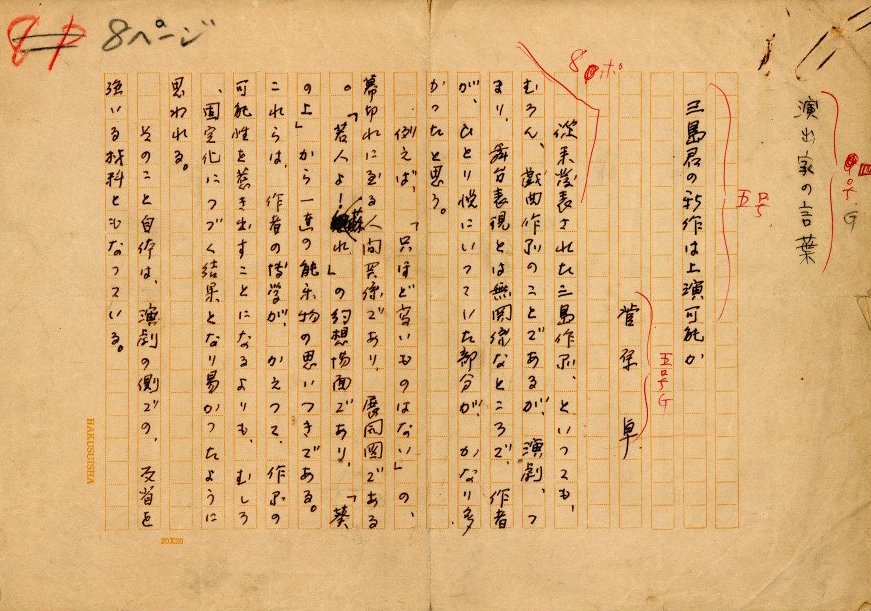 8P 8ページ
演出家の言葉
三島君の新作は上演可能か
五号
菅原 卓
五号G
8ポ
従来発表された三島作品、といっても、
むろん、戯曲作品のことであるが、演劇、つ
まり、舞台表現とは無関係なところで、作者
が、ひとり悦にいっていた部分が、かなり多
かったと思う。
例えば、「只ほど高いものはない」の、
幕切れに至る人間関係であり、展開図である
。「若人よ!蘇れ」の幻想場面であり、「葵
の上」から一連の能楽物の思いつきである。
これらは、作者の博学が、かえって、作品の
可能性を惹き出すことになるよりも、むしろ
、固定化につづく結果となり易かったように
思われる。
そのこと自体は、演劇の側での、反省を
強いる材料ともなっている。
HAKUSUISHA
20X20